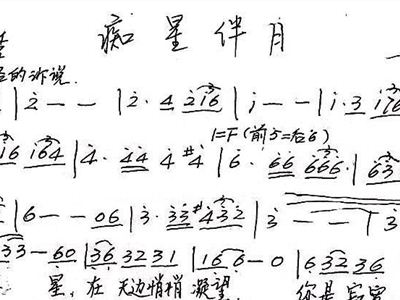 痴星伴月
的诉说.
| 2 - - | 2· 4 216 | i - - | i· 3 176
1=F (前5=后6)
16 164 | 4· 44 4 #4 | 6· 66 666· | 63
| 6 - - 06 | 3· 33 #432 | 3 - - | 3
33 - 60 | 36 3231 | 166 - 0 | 63236
星, 在 天边悄悄 凝望. 你是